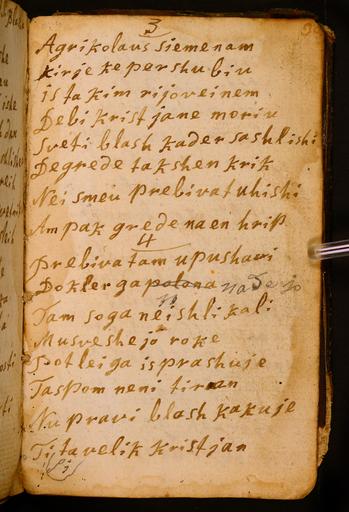 3
Agrikolaus siemenam
kirje ke pershu biu
is ta kim rijoveinem
Debi krist jane moriu
Sveti blash kader sa shlishi
De grede ta kshen krik
Nei smeu prebivat u hishi
Ampak grede na en hriß
4
Prebiva tam u pushavi
Dokler ga polona nadejo
Tam so ga neishli kali
Mu sveshejo roke
Pot lei ga isprashuje
Ta spom neni tiran
Nu pravi blash kakuje
Ti ta velik kristjan